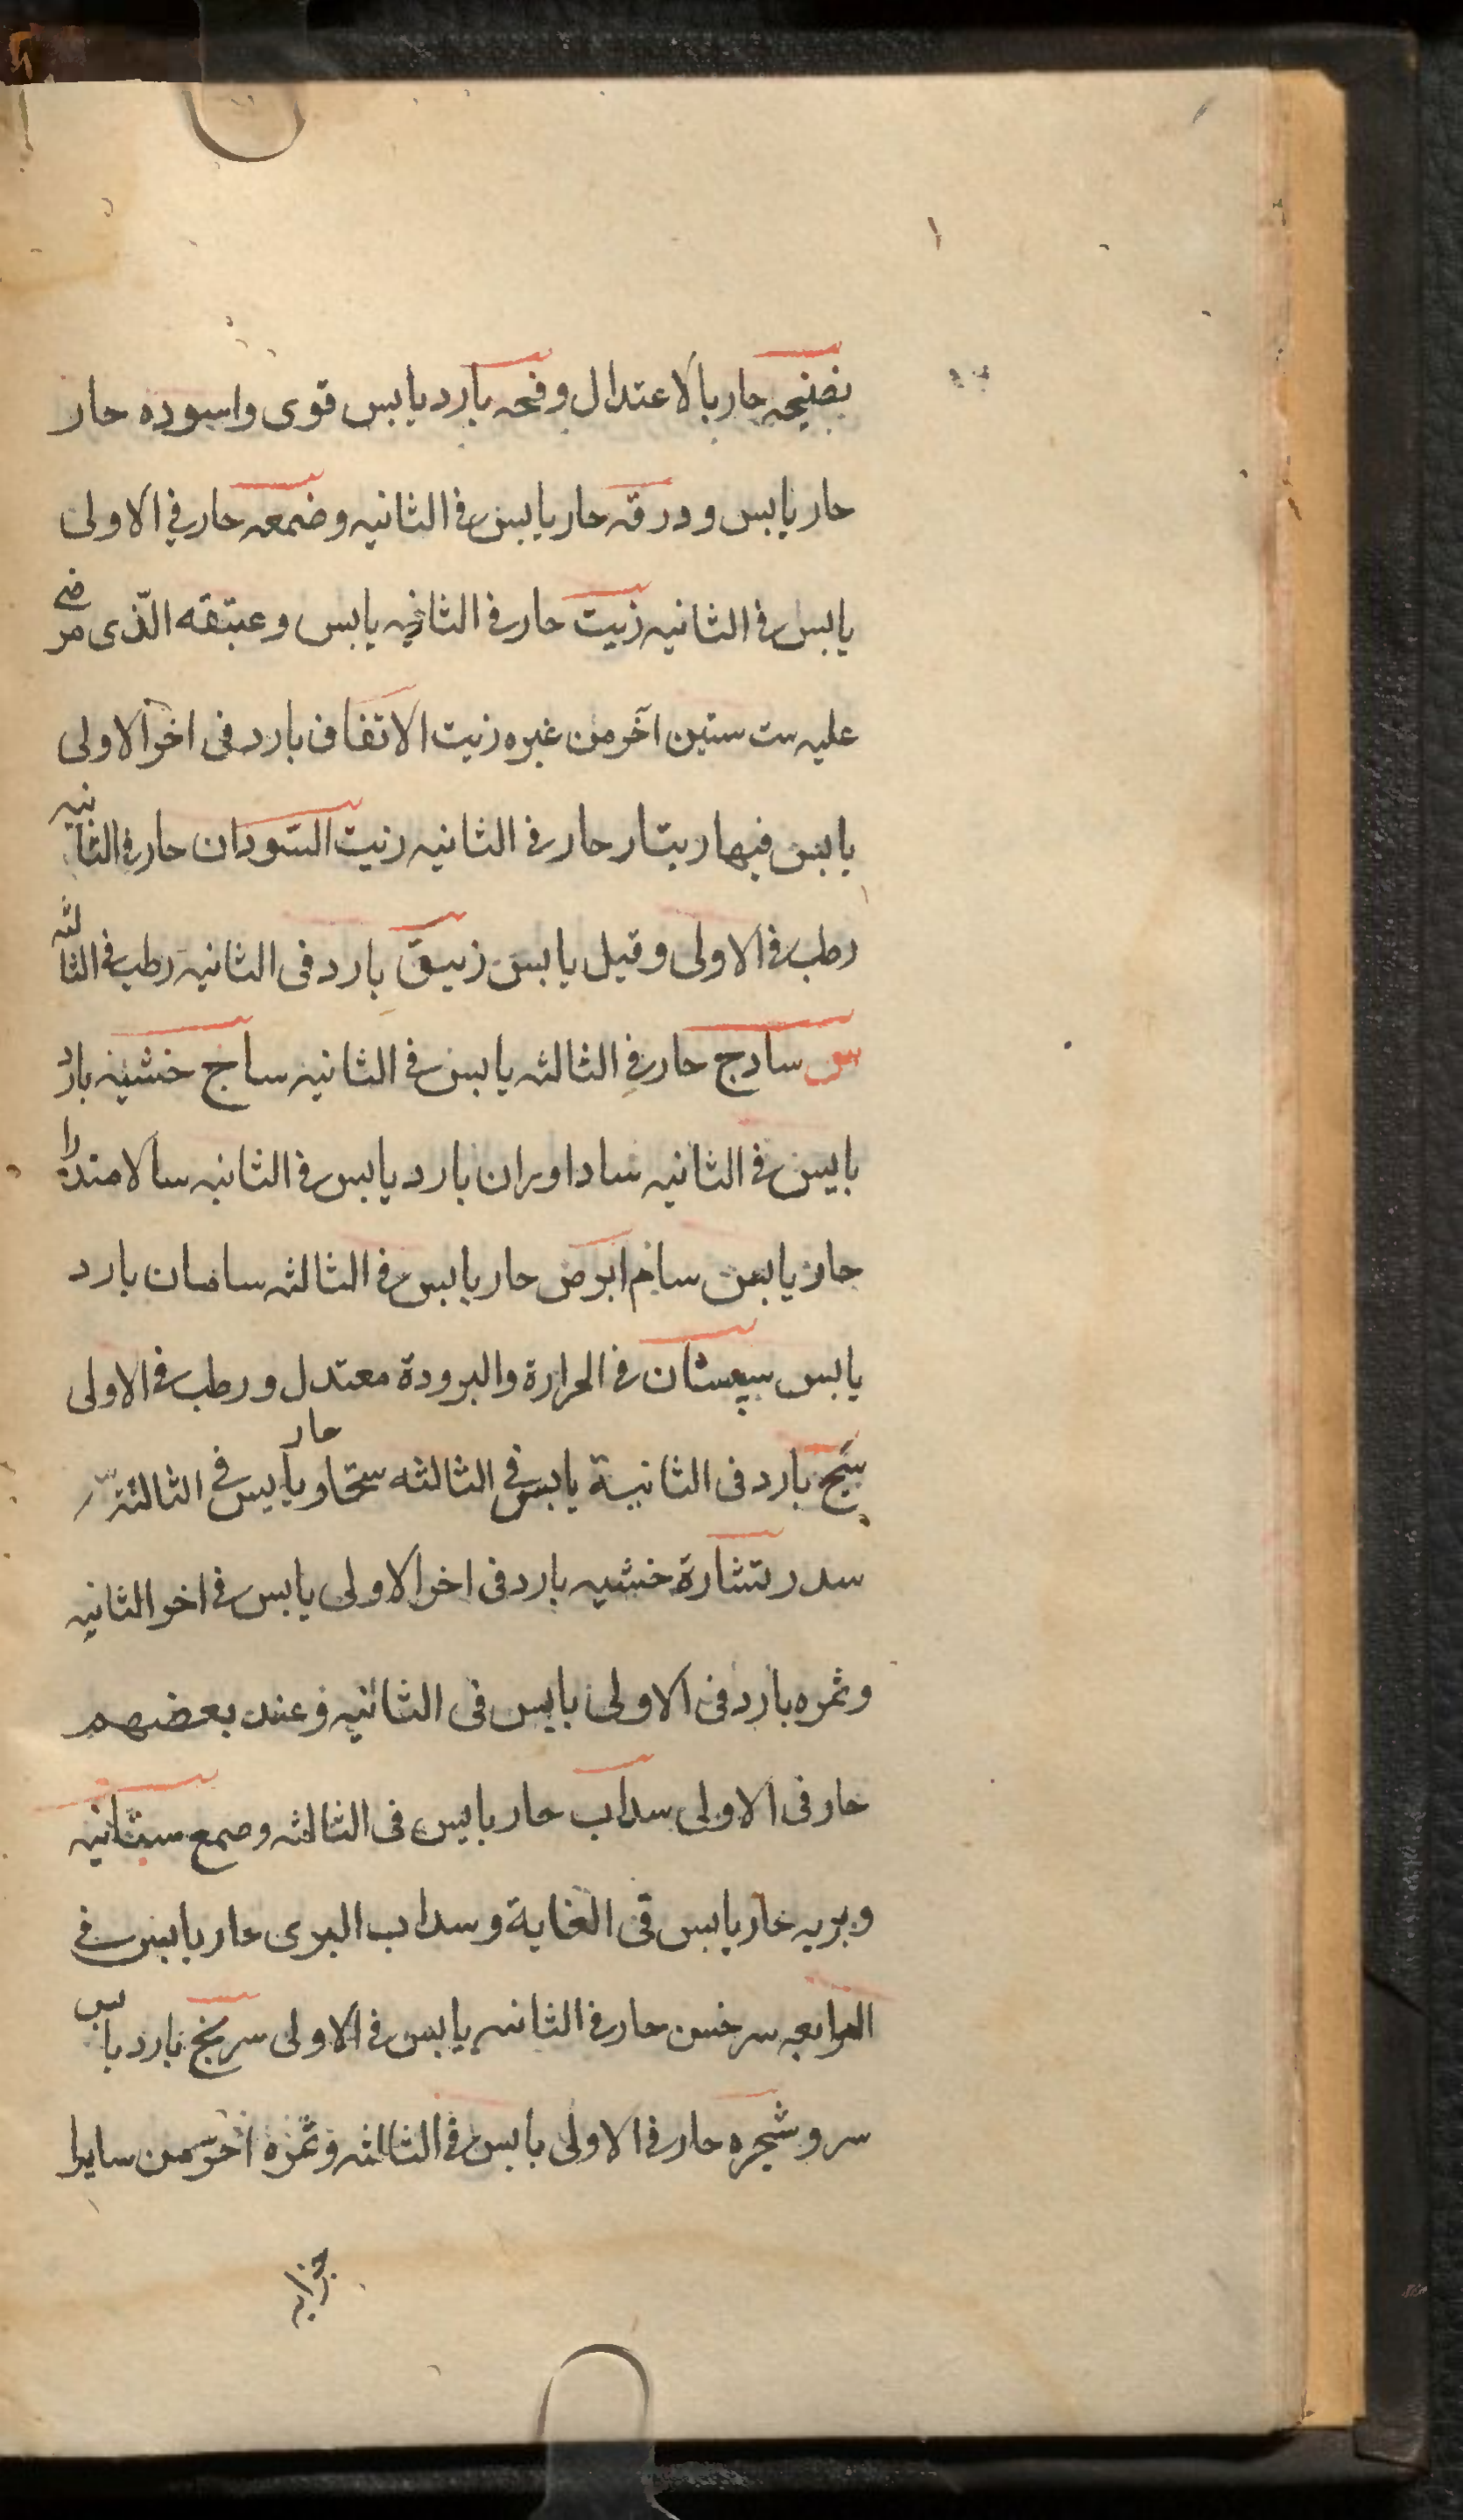 نضيجه حار بالاعتدال وفحه بارد يابس قوى واسوده حار
حار يابس وورقه حار يابس فى الثانيه وضمعه حار فى الاولى
يابس فى الثانيه زيت حار فى الثانيه يابس وعتيقه الّذى مرضى
عليه ست سنين آخر من غيره زيت الاتفاق بارد فى اخر الاولى
يابس فيها ريتار حار فى الثانيه زيت السّودان حار فى الثانيه
رطب فى الاولى وقيل يابس زيبق بارد فى الثانيه رطب فى الثالثه
س سادج حار فى الثالثه يابس فى الثانيه ساج خشبه بارد
يابس فى الثانيه ساداوران بارد يابس فى الثانيه سالامندرا
حار يابس سام ابرص حار يابس فى الثالثه ساسان بارد
يابس سپستان فى الحرارة والبرودة معتدل ورطب فى الاولى
سبج بارد فى الثانية يابس فى الثالثه حار يابس فى الثالثه
سدر نشارة خشبه بارد فى اخر الاولى يابس فى اخر الثانيه
وثمره بارد فى الاولى يابس فى الثانيه وعند بعضهم
حار فى الاولى سداب حار يابس فى الثالثه وصمع بستانيه
وبريه حار يابس فى الغاية وسداب البرى حار يابس فى
الرابعه سرخس حار فى الثانيه يابس فى الاولى سرنج بارد يابس
سرو شجره حار فى الاولى يابس فى الثالثه وثمره احرّ من ساير